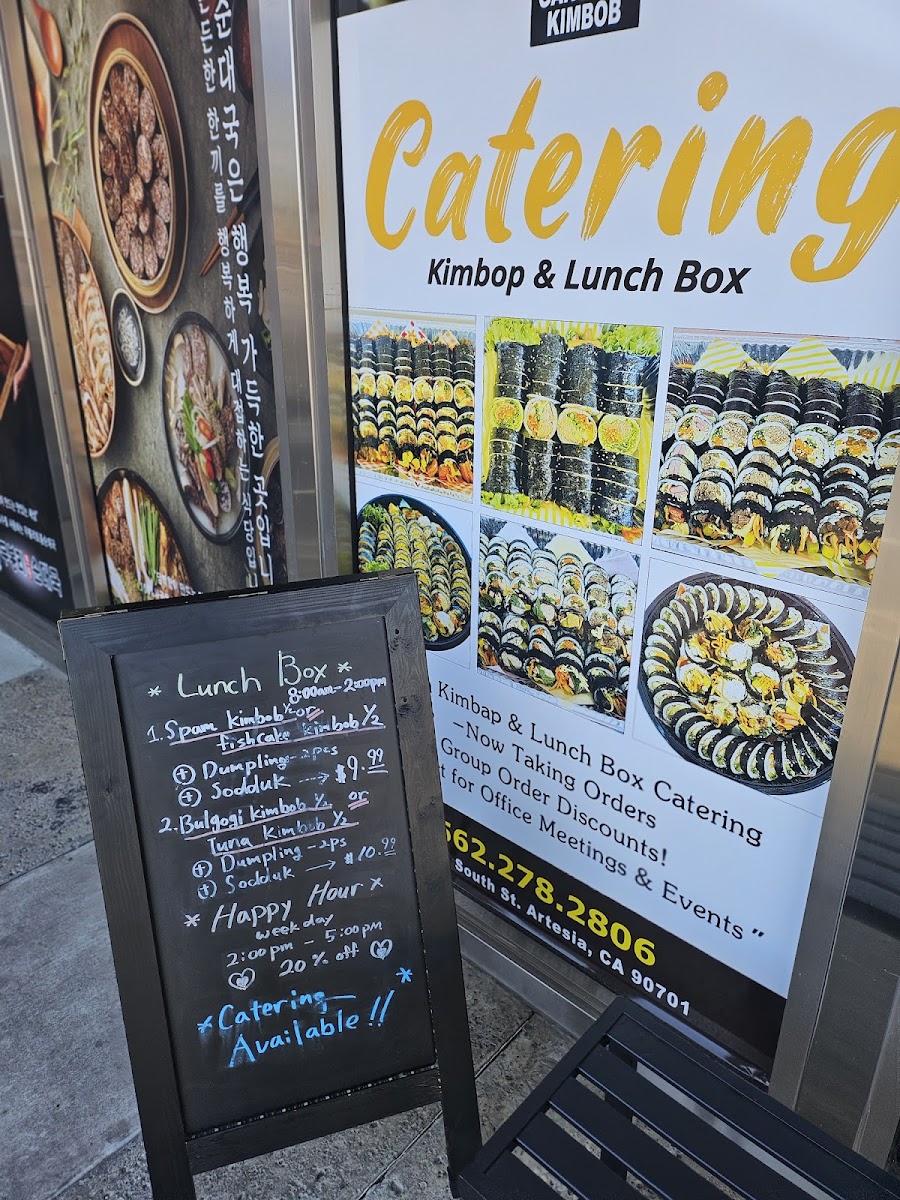 순대국은 행복 가득한 곳입니
든든한 한끼를 행복하게 대접하는
KIMBOB
Catering
Kimbop & Lunch Box
Kimbap & Lunch Box Catering
-Now Taking Orders
Group Order Discounts!
t for Office Meetings & Events"
562.278.2806
South St. Artesia, CA 90701
* Lunch Box *
8:00am-2:00pm
1. Spam kimbob ½ or
fishcake kimbob ½
+ Dumpling - 2pcs
+ Sodduk → $9.99
2. Bulgogi kimbob ½ or
Tuna kimbob ½
+ Dumpling - 2ps
+ Sodduk → $10.99
* Happy Hour *
weekday
2:00pm - 5:00pm
20% off
* Catering *
Available!!